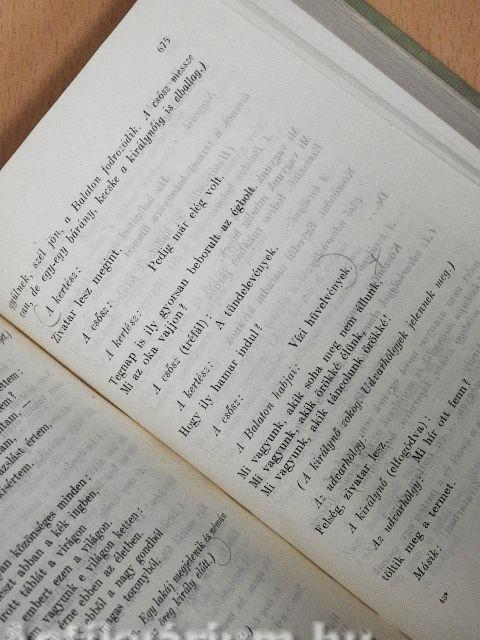 675
gyűlnek, szél jön, a Balaton fodrozódik. A csősz messze
van, de egy-egy bárány, kecske a királynőig is elballag.)
A kertész:
Zivatar lesz megint.
A csősz:
Pedig már elég volt.
A kertész:
Tegnap is ily gyorsan beborult az égbolt.
Mi az oka vajjon?
A csősz (tréfál):
A tündelevények.
A kertész:
Hogy ily hamar indul?
A csősz:
Vízi hüvelvények.
A Balaton habjai:
Mi vagyunk, akik soha meg nem állunk,
Mi vagyunk, akik örökké élünk,
Mi vagyunk, akik táncolunk örökké!
(A királynő zokog. Udvarhölgyek jelennek meg.)
Az udvarhölgy:
Felség, zivatar lesz.
A királynő (elfogódva):
Mi hír ott fenn?
Az udvarhölgy:
töltik meg a termet.
Másik:
43*
értem.
kísértem.
közönséges minden;
abban a kék ingben,
táblát a virágon
embert ezen a világon.
vagyunk e világon ketten;
ebben az életben,
ebből a nagy gondból
magas toronyból.
Egy lakáj megjelenik és némán
öreg király előtt.)